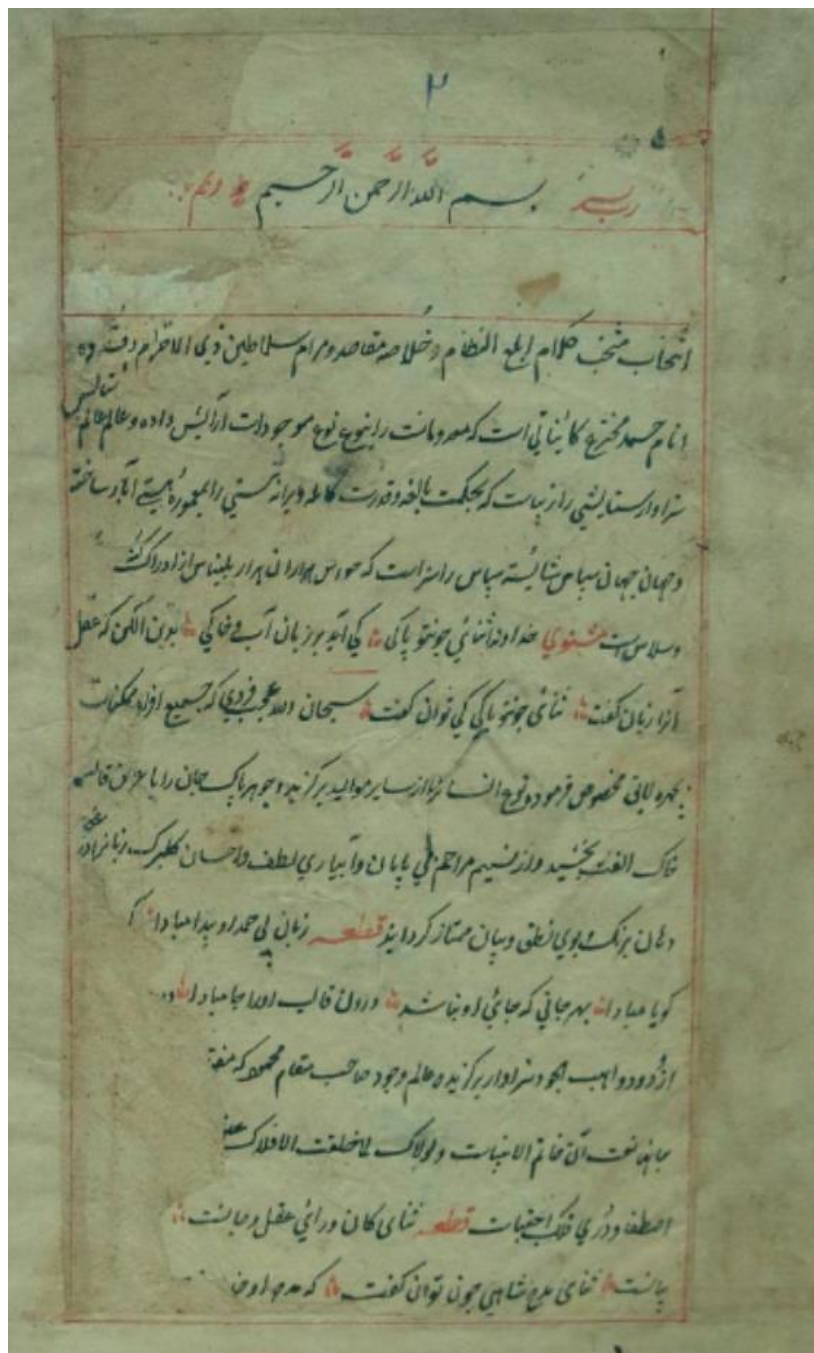 ۲
رب یسر بسم الله الرحمن الرحیم و تمم
انتخاب منتخب کلام ابلغ النظام و خلاصه مقاصد و مرام سلاطین ذوی الاحترام
انام حمد مخترع کائیناتی است که معدومات را بنوع نوع موجودات آرایش داده و عالم عالم ستایس
سزاوار ستایشی را زیباست که بحکمت بالغه و قدرت کامله ویرانه نیستی را بمعموره هستی آباد ساخته
و جهان جهان سپاس شائسته سپاس را سزاست که حواس هزاران هزار از ادراک
است مثنوی خداوندا ثنای چونتو پاکی کی آید بر زبان آب و خاکی بدین الکن که عقل
آنرا زبان گفت ثنای چونتو پاکی کی توان گفت سبحان الله عجب فردی که جمیع افراد ممکنات
مخصوص فرمود و نوع انسانرا از سایر موالید برگزید و جوهر پاک جان را با قالب
خاک الفت بخشید و از نسیم مراحم بی پایان و آبیاری لطف و احسان کلبرک زبانرا در
دهان برنک و بوی نطق و بیان ممتاز کردانید قطعه زبان بی حمد او پیدا مبادا
کویا مبادا بهر جانی که جائی او نباشد درون قالب اورا جا مبادا
از درود واهب الجود سزاوار برکزیده عالم وجود صاحب مقام محمود که
نعت آن خاتم الانبیات و لولاک لما خلقت الافلاک
اصطفا و دری فلک اجتبات قطعه ثنای کان ورائی عقل و جانست
ثنای مدح شاهی چون توان کفت که مدح او